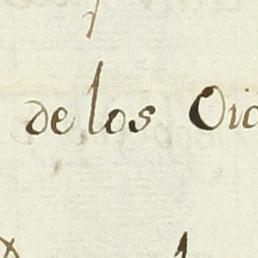 de los Oid